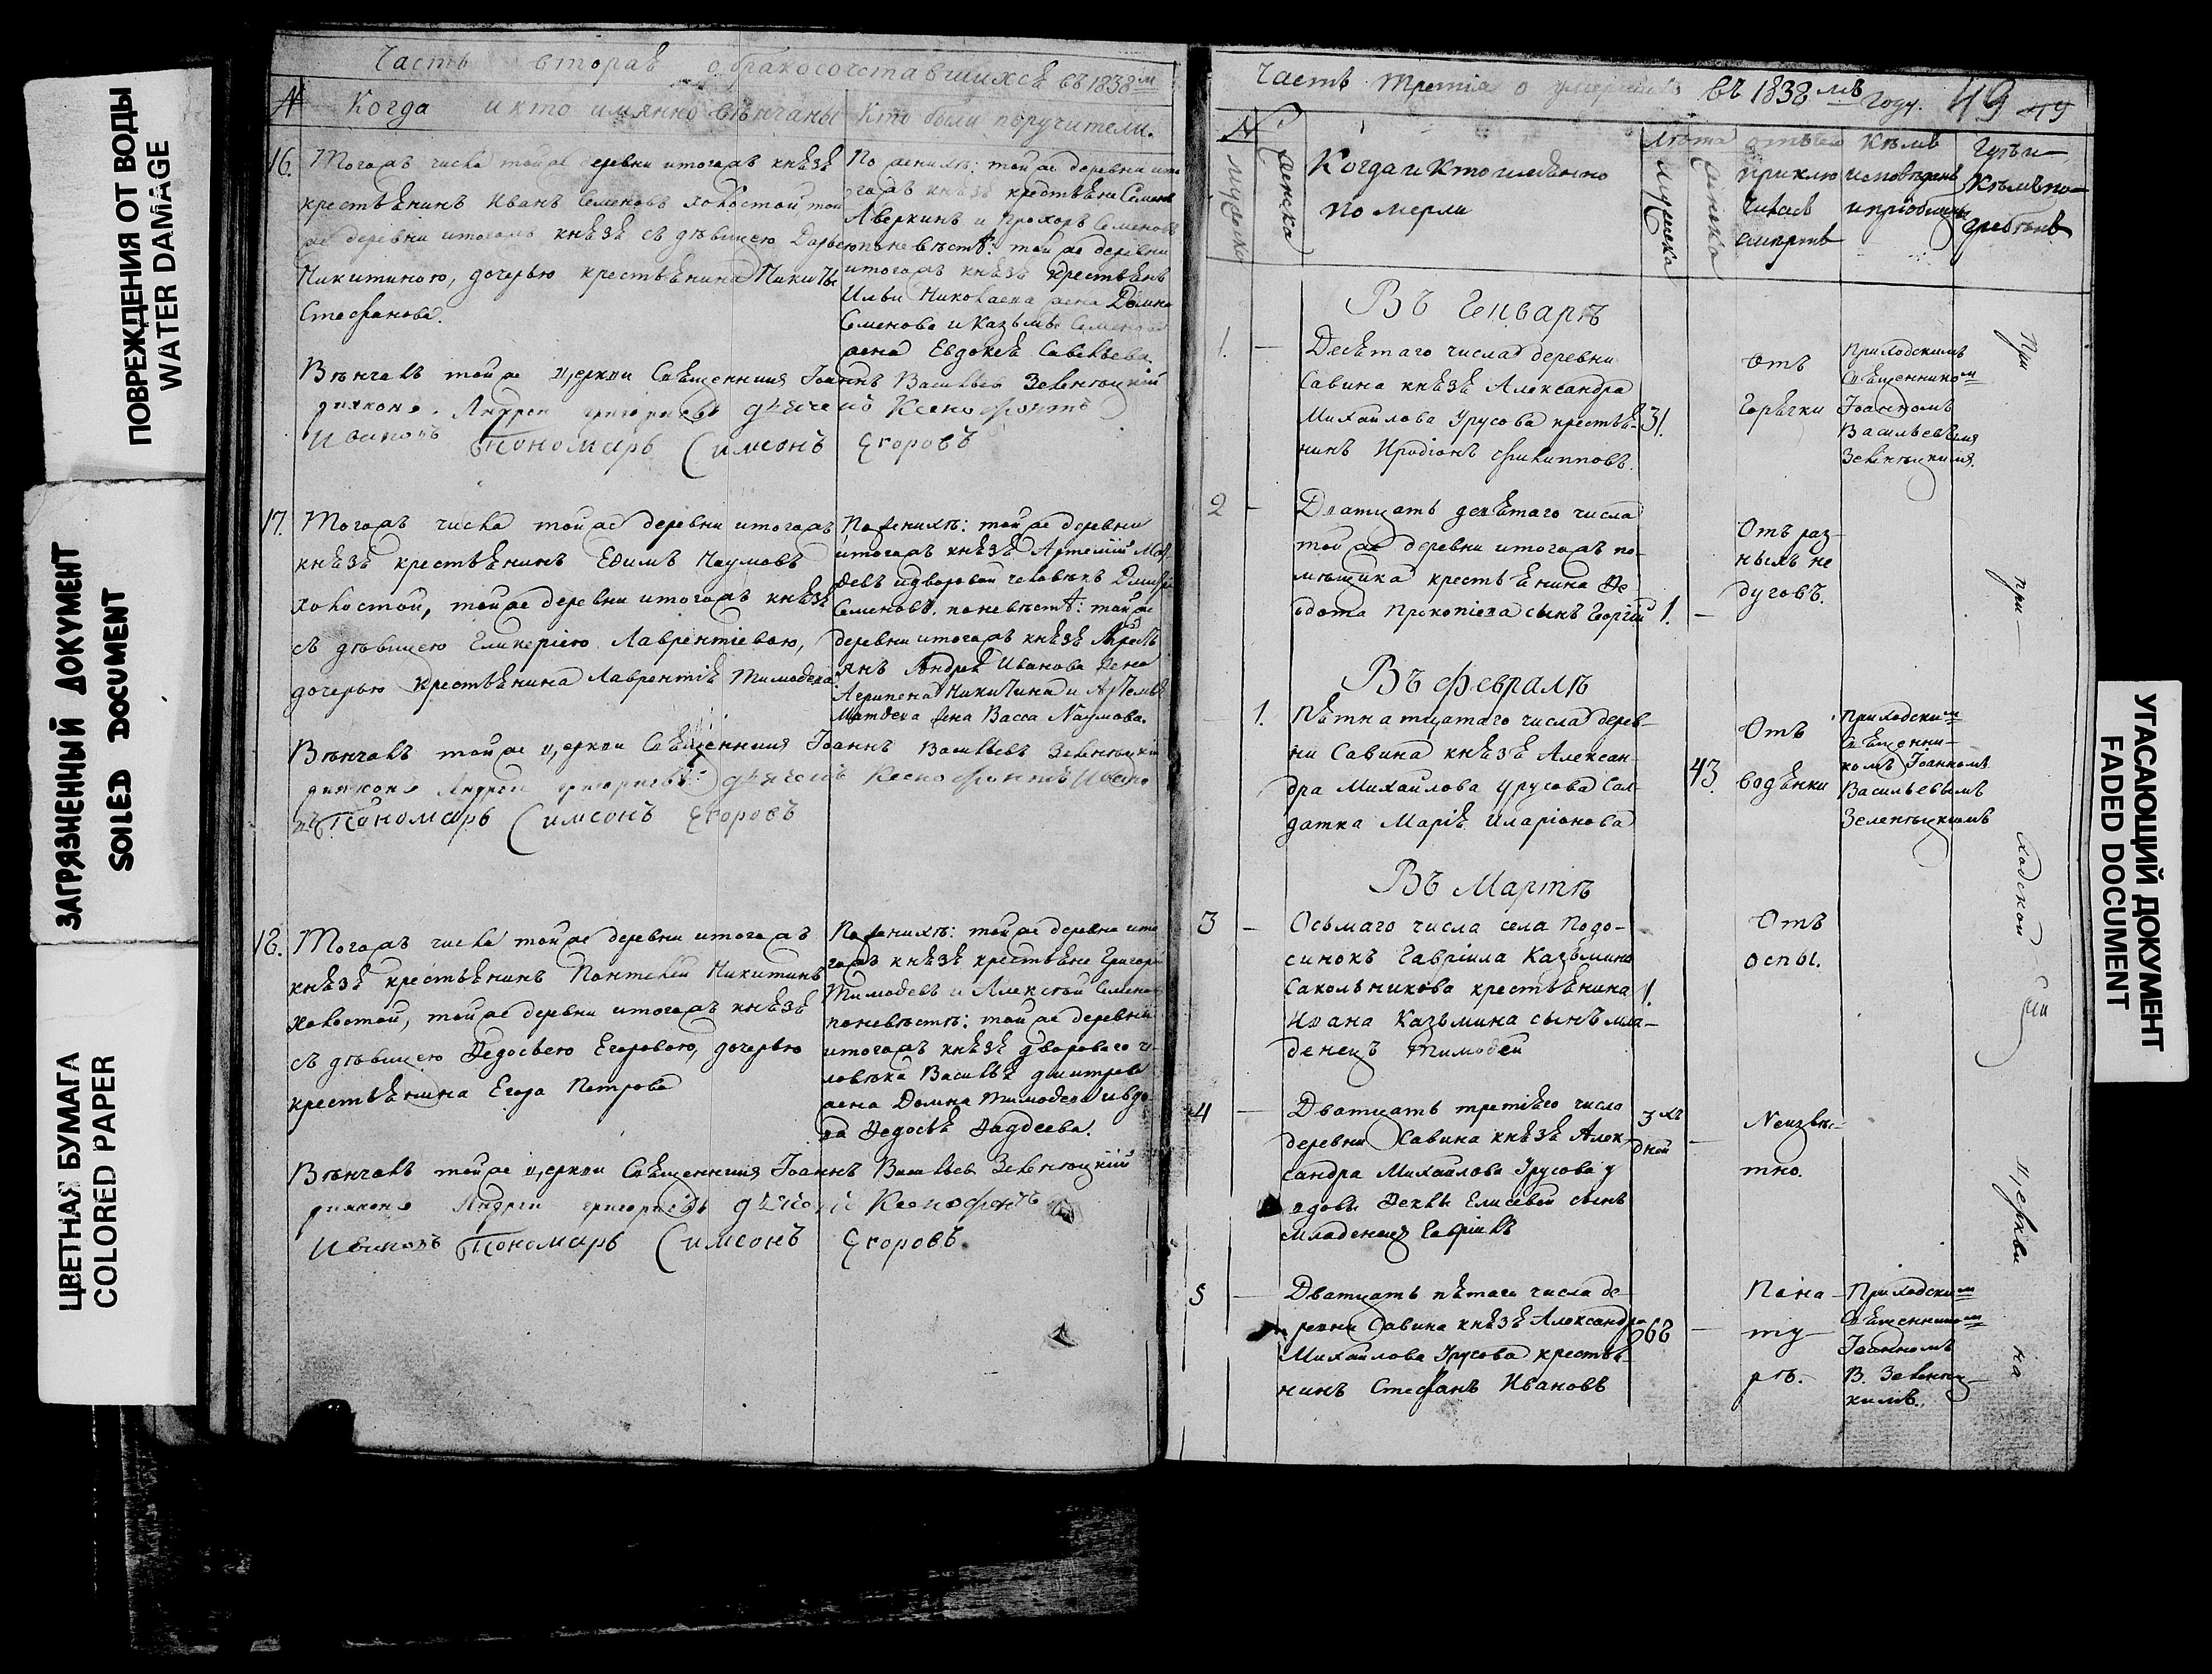 ПОВРЕЖДЕНИЯ ОТ ВОДЫ
WATER DAMAGE
ЗАГРЯЗНЕННЫЙ ДОКУМЕНТ
SOILED DOCUMENT
ЦВЕТНАЯ БУМАГА
COLORED PAPER
Часть вторая о бракосочетавшихся въ 1838м
№ Когда и кто имянно вѣнчаны
Кто были поручители.
16. Тогожъ числа тойже деревни итогожъ князя
крестьянинъ Иванъ Семеновъ холостой той
же деревни итогожъ князя съ дѣвицею Дарьею
Никитиною, дочерью крестьянина Никиты
Стефанова.
По женихѣ: тойже деревни ито
гожъ князя крестьяне Семенъ
Аверкинъ и Прохоръ Семеновъ
поневѣстѣ: тойже деревни
итогожъ князя крестьянъ
Ильи Николаева жена Домна
Семенова и Казьмы Семенова
жена Евдокея Савельева
Вѣнчалъ тойже церкви Священникъ Іоаннъ Васильевъ Зеленецкій
дияконъ Андрей григорьевъ дьячекъ Ксенофонтъ
Ивановъ Пономарь Симеонъ Егоровъ
17. Тогожъ числа тойже деревни итогожъ
князя крестьянинъ Ефимъ Наумовъ
холостой, тойже деревни итогожъ князя
съ дѣвицею Гликеріею Лаврентіевою,
дочерью крестьянина Лаврентія Тимофеева
Поженихѣ: тойже деревни
итогожъ князя Артемій Мат
февъ идворовой человѣкъ Дмитрій
Семеновъ. поневѣстѣ: тойже
деревни итогожъ князя крестьянъ
Андрея Иванова жена
Агрипена Никитина и Артемья
Матфева жена Васса Наумова.
Вѣнчалъ тойже церкви Священникъ Іоаннъ Васильевъ Зеленецкій
дияконъ Андрей григорьевъ дьячекъ Ксенофонтъ Ивано
въ Пономарь Симеонъ Егоровъ
18. Тогожъ числа тойже деревни итогожъ
князя крестьянинъ Пантелей Никитинъ
холостой, тойже деревни итогожъ князя
съ дѣвицею Ѳедосьею Егоровою, дочерью
крестьянина Егора Петрова
Поженихѣ: тойже деревни ито
гожъ князя крестьяне Григорій
Тимофевъ и Алексѣй Семеновъ
поневѣстѣ: тойже деревни
итогожъ князя двороваго че
ловѣка Василья дмитрева
жена Домна Тимофева ивдо
ва Ѳедосья Фадеева.
Вѣнчалъ тойже церкви Священникъ Іоаннъ Васильевъ Зеленецкій
дияконъ Андрей григорьевъ дьячекъ Ксенофонтъ
Ивановъ Пономарь Симеонъ Егоровъ
Часть третія о умершихъ въ 1838мъ году. 49 49
№
мужска
женска
Когда и Кто имянно
померли
Лѣта
мужска
женска
отъчего
приклю
чилась
смерть
Кѣмъ
исповѣданъ
и пріобщены
Гдѣ и
Кѣмъ по
гребенъ
Въ Генварѣ
1. — Десятаго числа деревни
Савина князя Александра
Михайлова Урусова крестья- 31.
нинъ Иродіонъ Филипповъ.
Отъ
Горячки
Приходскимъ
Священникомъ
Іоанномъ
Васильевымъ
Зеленецкимъ.
2 — Дватцать девятаго числа
той же деревни итогожъ по-
мѣщика крестьянина Ѳе
одота Прокопіева сынъ Георгій 1. —
Отъ раз-
ныхъ не
дуговъ.
Въ Февралѣ
1. Пятнатцатаго числа дерев-
ни Савина князя Алексан-
дра Михайлова Урусова Сал-
датка Марія Иларіонова
43.
Отъ
водянки
Приходским
Священни-
комъ Іоанномъ
Васильевымъ
Зеленецкимъ
Въ Мартѣ
3 — Осьмаго числа села Подо-
синокъ Гавріила Казьмина
Сакольникова крестьянина 1.
Ивана Казьмина сынъ мла-
денецъ Тимофей
Отъ
оспы.
4 — Дватцать третіяго числа
деревни Савина князя Алек-
сандра Михайлова Урусова у
вдовы Ѳеклы Елисевой сынъ
младенецъ Гавріилъ
3хъ
дней —
Неизвѣ-
тно.
5 — Дватцать пятаго числа де-
ревни Савина князя Александра
Михайлова Урусова крестья-
нинъ Стефанъ Ивановъ
68 —
Пона-
ту-
рѣ.
Приходским
Священником
Іоанномъ
В. Зеленец-
кимъ.
При
при-
ходской
церкви
на
УГАСАЮЩИЙ ДОКУМЕНТ
FADED DOCUMENT